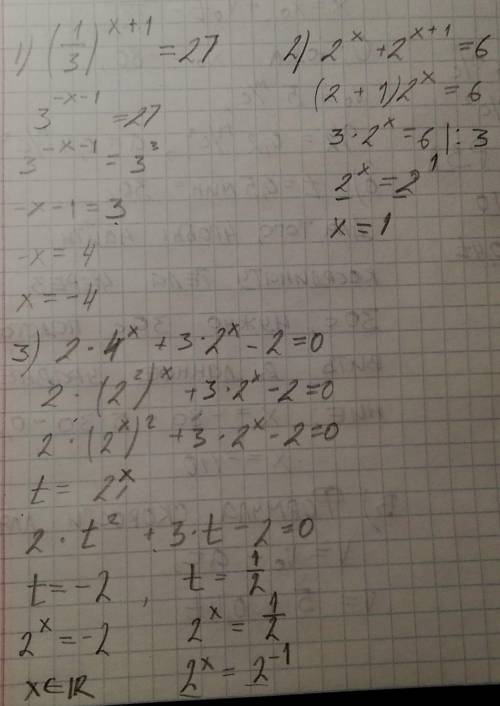 1) (1/3)^(x+1) = 27
3^(-x-1) = 27
3^(-x-1) = 3^3
-x-1 = 3
-x = 4
x = -4
2) 2^x + 2^(x+1) = 6
(2 + 1)2^x = 6
3 · 2^x = 6 | : 3
2^x = 2^1
x = 1
3) 2 · 4^x + 3 · 2^x - 2 = 0
2 · (2^2)^x + 3 · 2^x - 2 = 0
2 · (2^x)^2 + 3 · 2^x - 2 = 0
t = 2^x
2 · t^2 + 3 · t - 2 = 0
t = -2 , t = 1/2
2^x = -2 2^x = 1/2
x ∈ ℝ 2^x = 2^(-1)